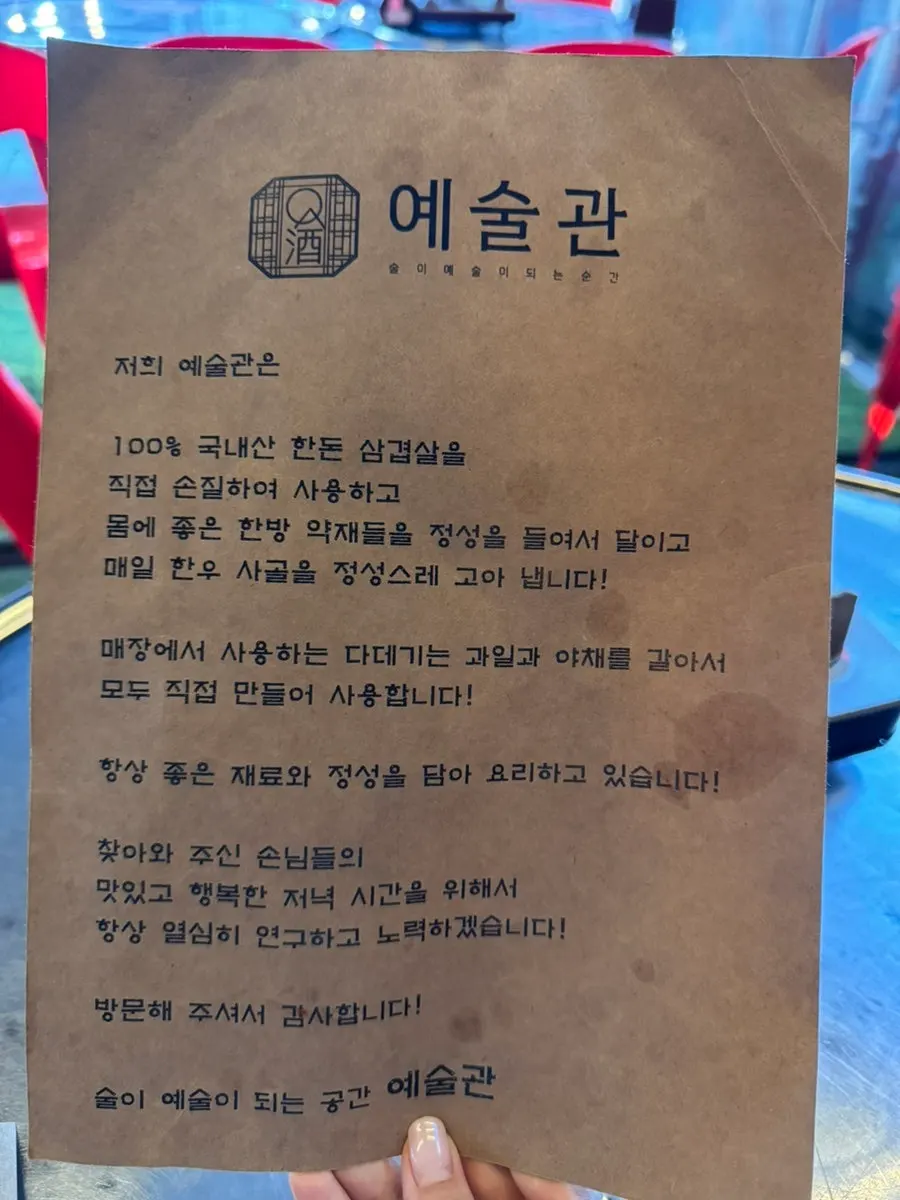 酒
예술관
술이예술이되는순간
저희 예술관은
100% 국내산 한돈 삼겹살을
직접 손질하여 사용하고
몸에 좋은 한방 약재들을 정성을 들여서 달이고
매일 한우 사골을 정성스레 고아 냅니다!
매장에서 사용하는 다데기는 과일과 야채를 갈아서
모두 직접 만들어 사용합니다!
항상 좋은 재료와 정성을 담아 요리하고 있습니다!
찾아와 주신 손님들의
맛있고 행복한 저녁 시간을 위해서
항상 열심히 연구하고 노력하겠습니다!
방문해 주셔서 감사합니다!
술이 예술이 되는 공간 예술관